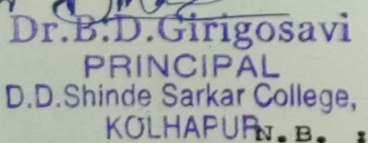 Dr.B.D.Girigosavi
PRINCIPAL
D.D.Shinde Sarkar College,
KOLHAPUR
N.B. :